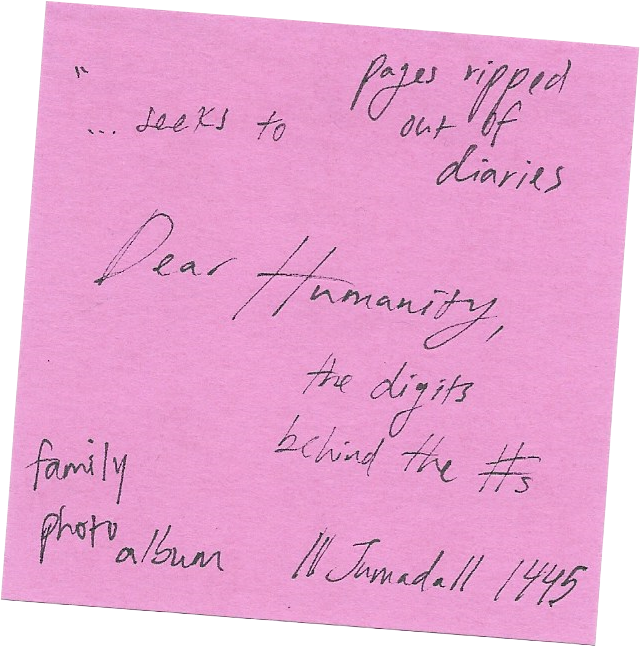 "
pages ripped
... seeks to
out of
diaries
Dear Humanity,
the digits
behind the #s
family
photo
album
111 Jumada 11 1445